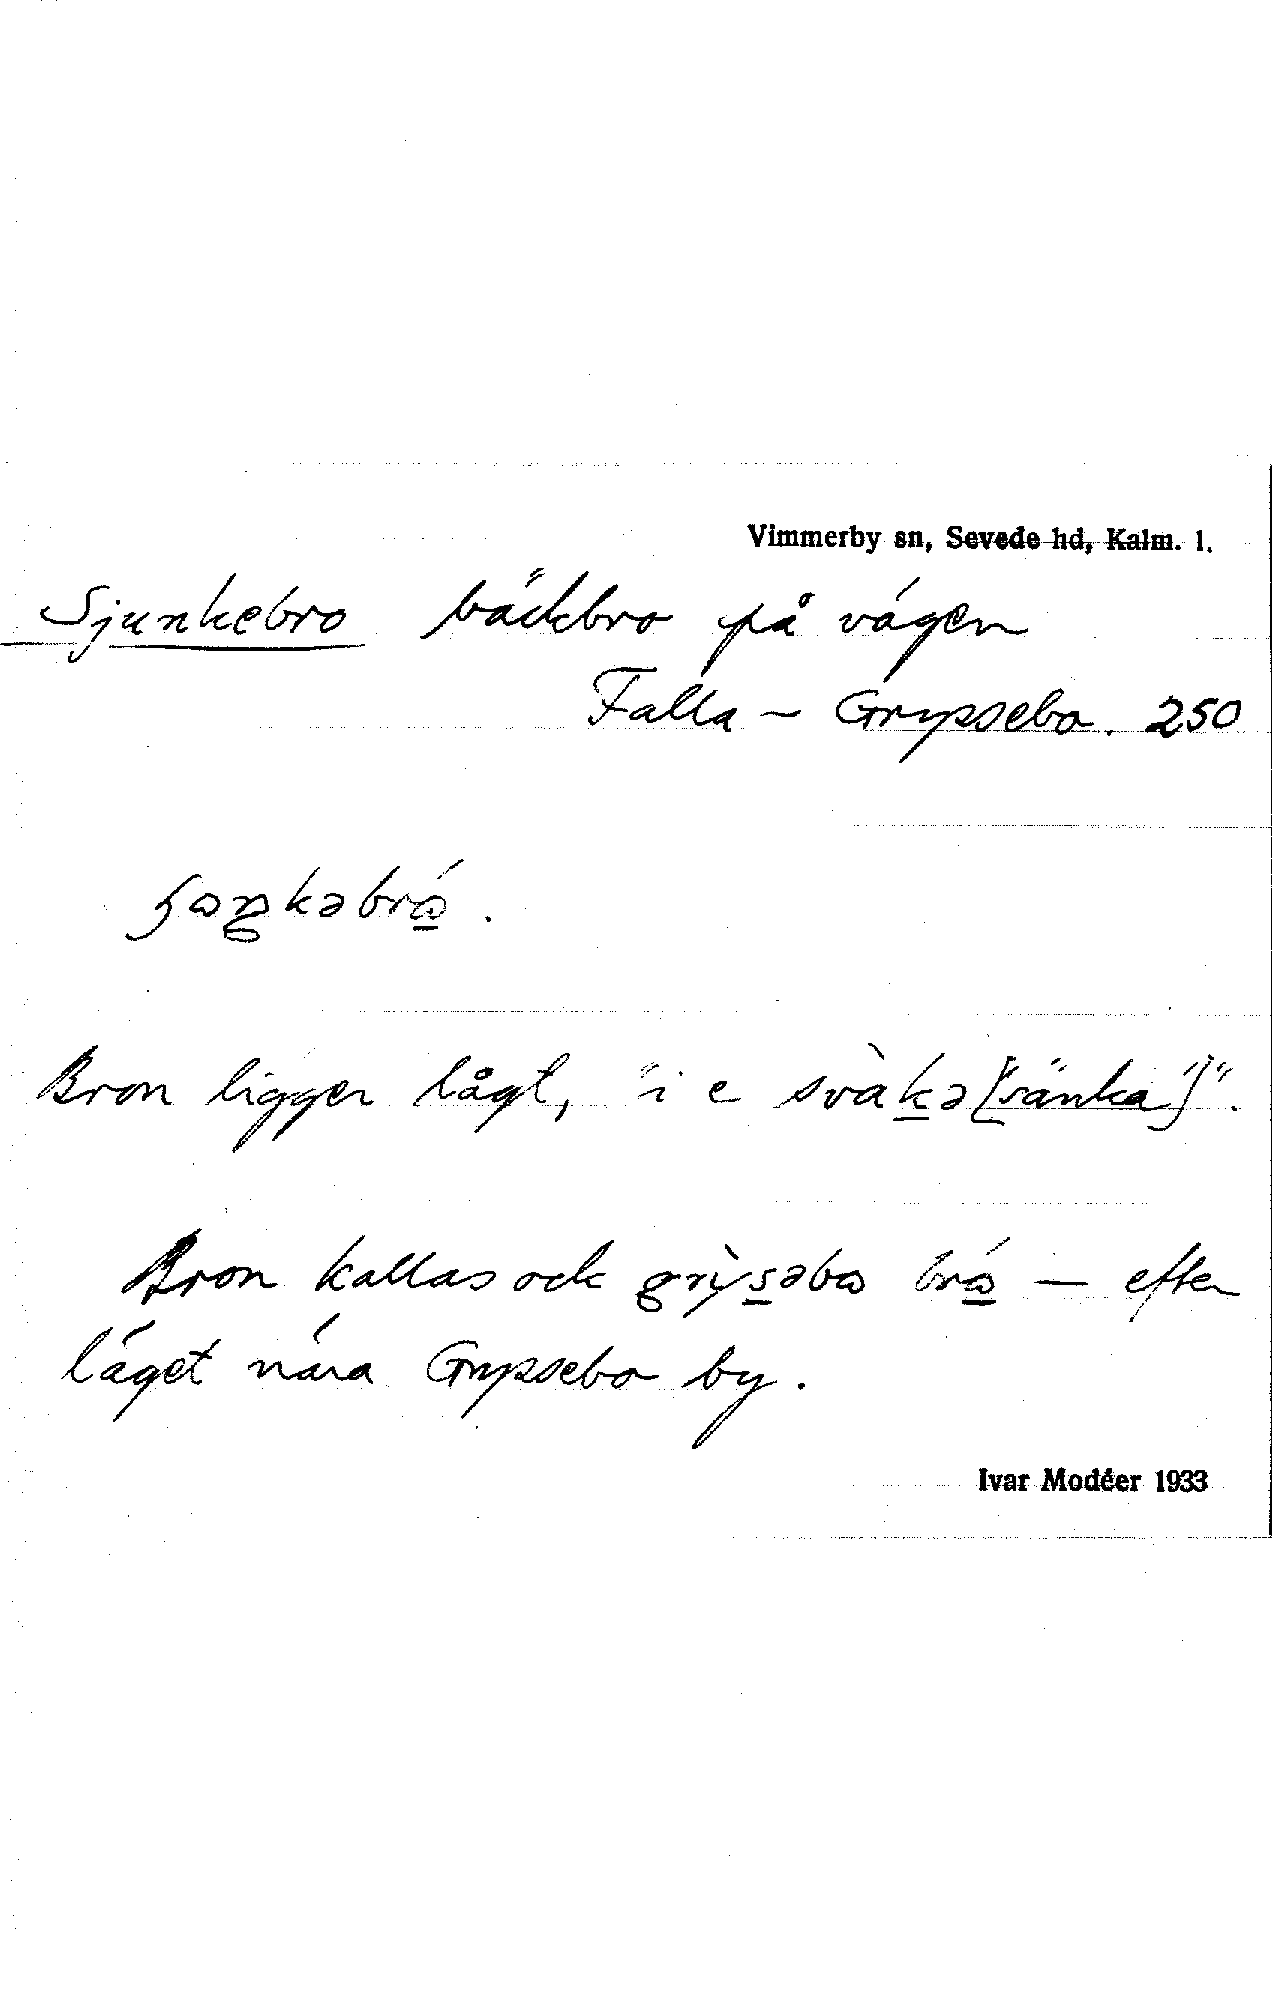 Vimmerby sn, Sevede hd, Kalm. l.
Sjunkebro bäckbro på vägen
Falla - Grypsebo. 250
Bron ligger lågt, "i e svàkə ["sänka"]".
Bron kallas ock grỳsəbω brώ — efter
läget nära Grypsebo by.
Ivar Modéer 1933